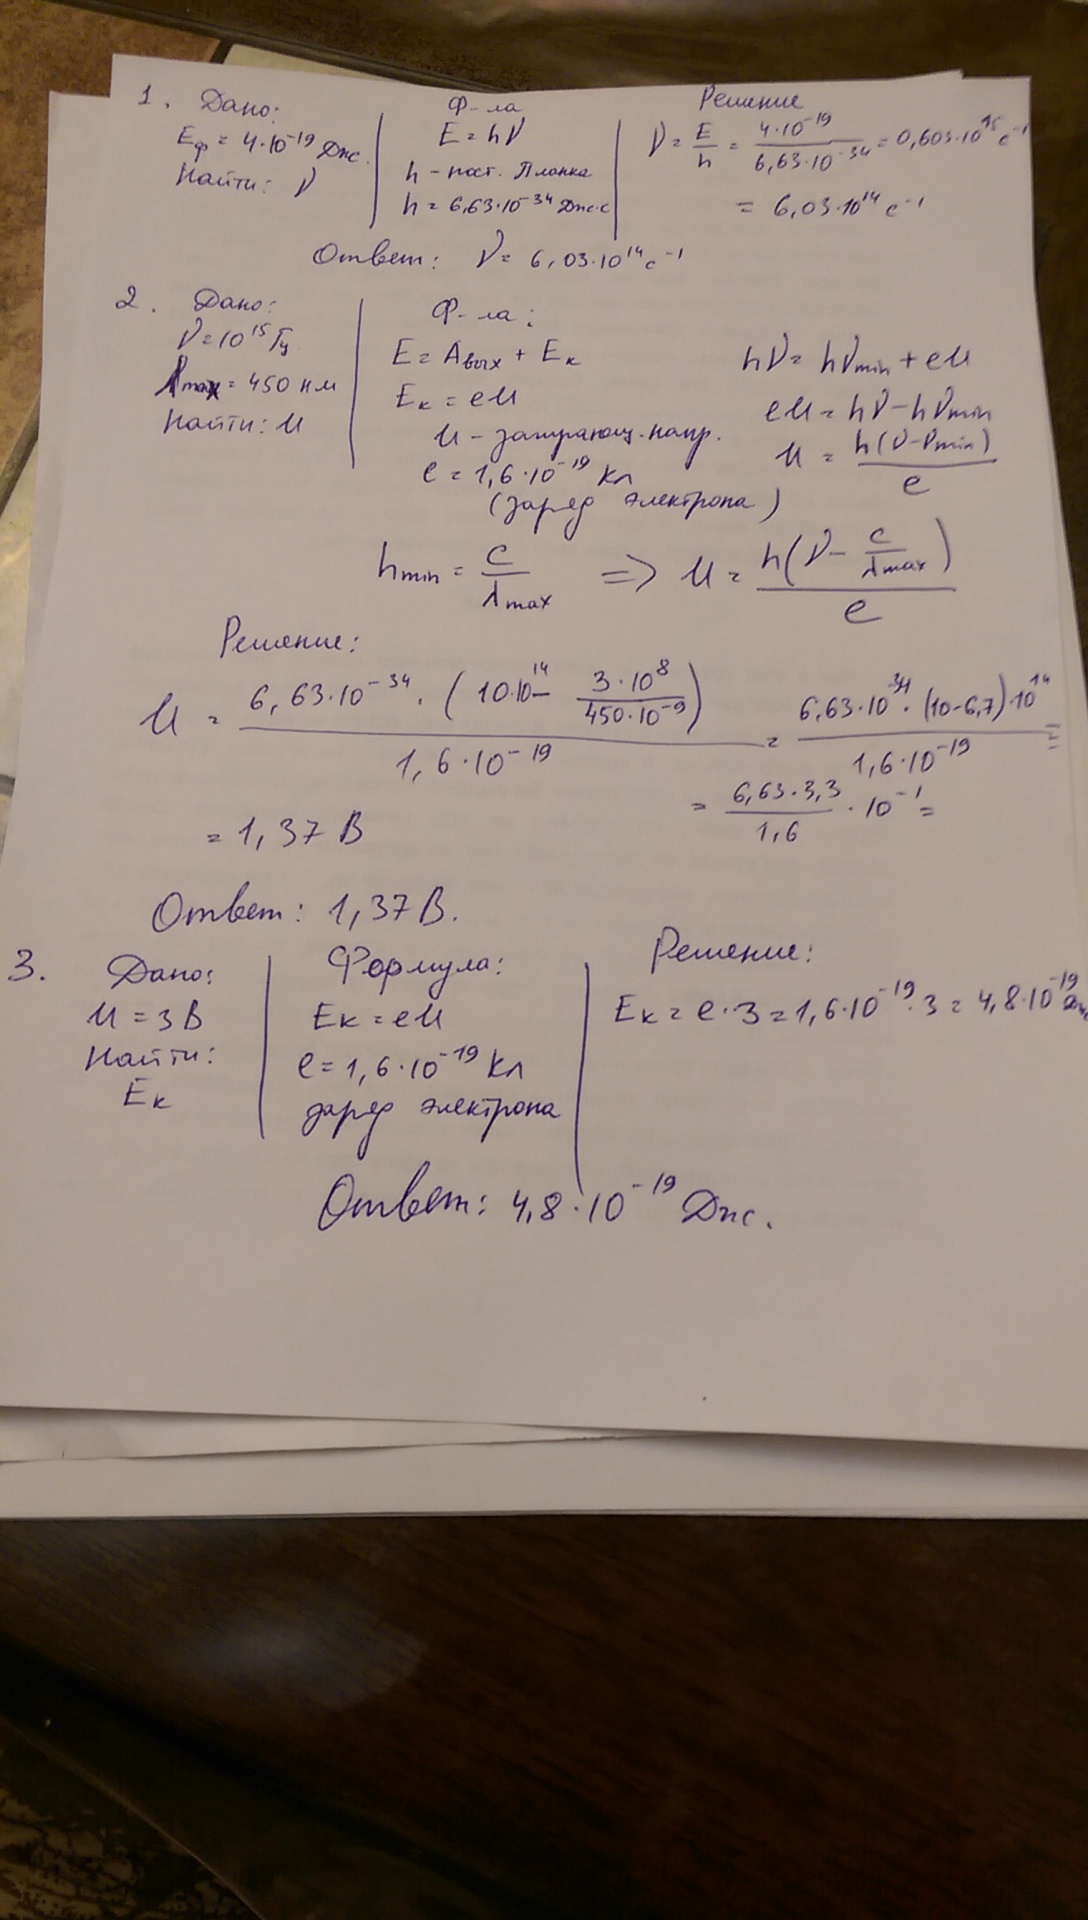 1. Дано:
Eф = 4·10⁻¹⁹ Дж.
Найти: ν
Ф-ла
E = hν
h - пост. Планка
h = 6,63·10⁻³⁴ Дж·с
Решение
ν = E/h = 4·10⁻¹⁹/6,63·10⁻³⁴ = 0,603·10¹⁵ с⁻¹
= 6,03·10¹⁴ с⁻¹
Ответ: ν = 6,03·10¹⁴ с⁻¹
2. Дано:
ν = 10¹⁵ Гц
λmax = 450 нм
Найти: U
Ф-ла:
E = Aвых + Eк
Eк = eU
U - запирающ. напр.
e = 1,6·10⁻¹⁹ Кл
(заряд электрона)
hν = hνmin + eU
eU = hν - hνmin
U = h(ν - νmin)/e
hmin = c/λmax => U = h(ν - c/λmax)/e
Решение:
U = 6,63·10⁻³⁴·(10·10¹⁴ - 3·10⁸/450·10⁻⁹)/1,6·10⁻¹⁹ = 6,63·10³⁴·(10-6,7)·10¹⁴/1,6·10⁻¹⁹ =
= 6,63·3,3/1,6 · 10⁻¹ =
= 1,37 В
Ответ: 1,37 В.
3. Дано:
U = 3 В
Найти:
Eк
Формула:
Eк = eU
e = 1,6·10⁻¹⁹ Кл
заряд электрона
Решение:
Eк = e·3 = 1,6·10⁻¹⁹·3 = 4,8·10⁻¹⁹ Дж
Ответ: 4,8·10⁻¹⁹ Дж.